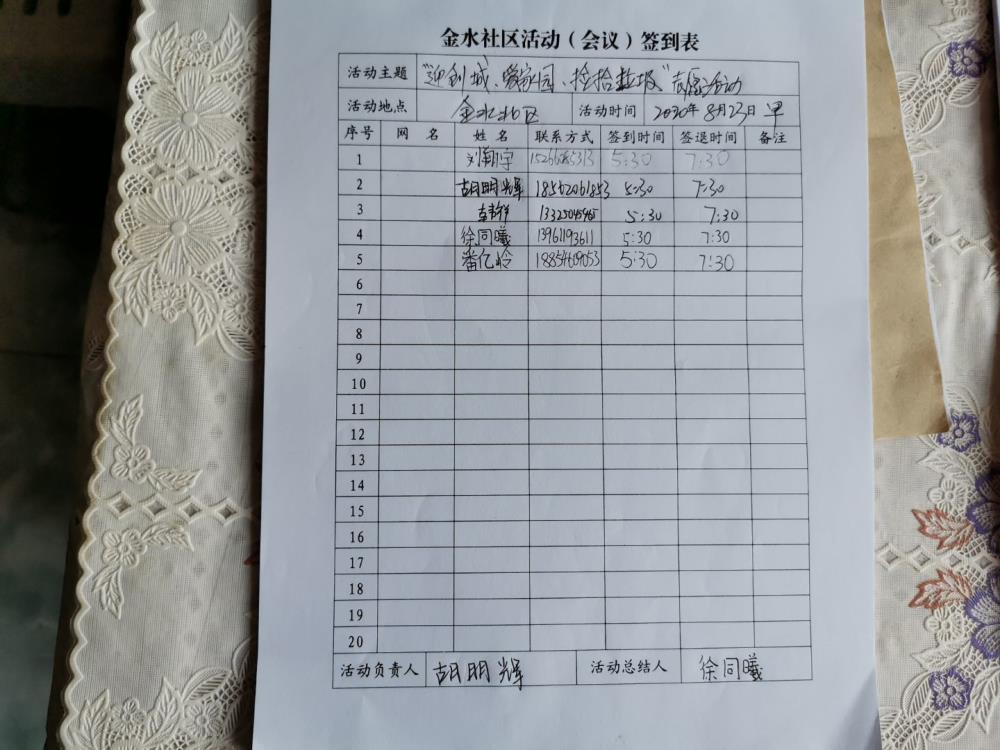 金水社区活动（会议）签到表
活动主题 "迎创城、爱家园、捡拾垃圾"志愿活动
活动地点 金水北区 活动时间 2030年8月23日早
序号 网名 姓名 联系方式 签到时间 签退时间 备注
1 刘翔宇 5:30 7:30
2 胡明辉 18562061853 5:30 7:30
3 5:30 7:30
4 徐同曦 13961193611 5:30 7:30
5 潘亿岭 5:30 7:30
6
7
8
9
10
11
12
13
14
15
16
17
18
19
20
活动负责人 胡明辉 活动总结人 徐同曦